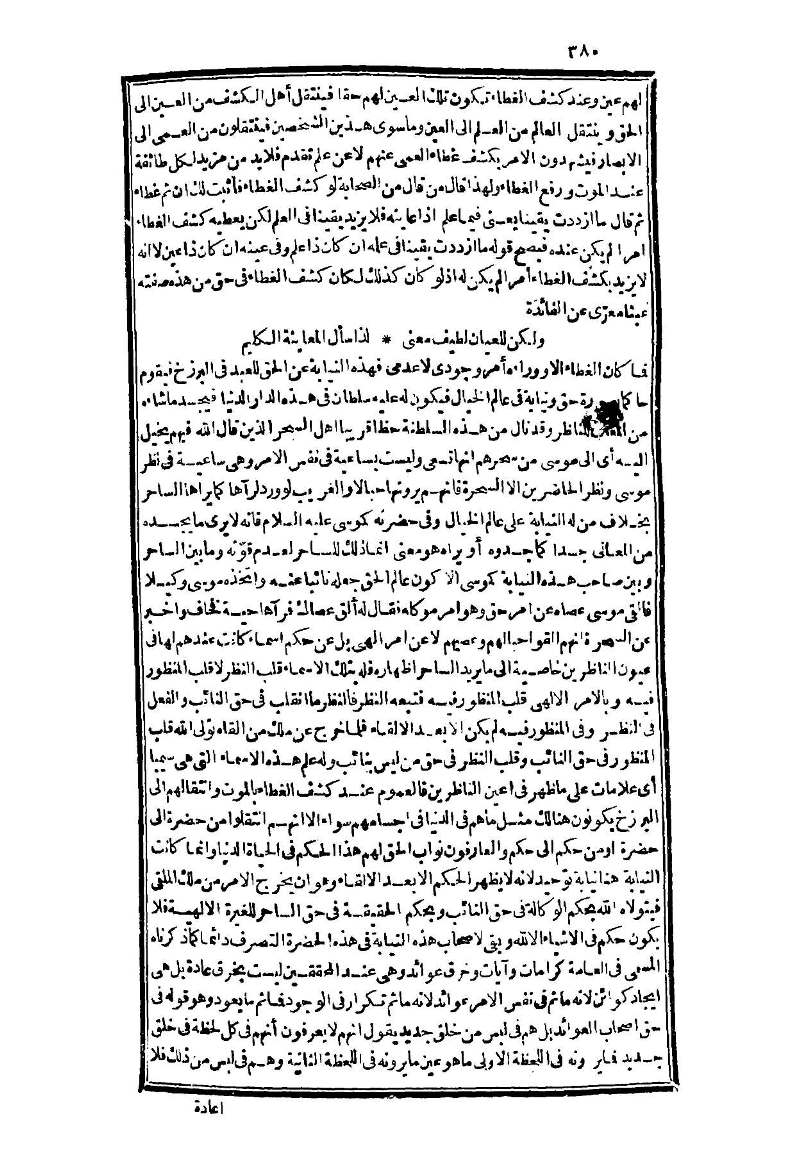 ٣٨٠
لهم عين وعند كشف الغطاء تكون تلك العين لهم حقا فينتقل أهل الكشف من العين الى
الحق وينتقل العالم من العلم الى العين وما سوى هذين الشخصين فينتقلون من العمى الى
الابصار فيشهدون الامر بكشف غطاء العمى عنهم لا عن علم تقدم فلابد من مزيد لكل طائفة
عند الموت ورفع الغطاء ولهذا قال من قال من الصحابة لو كشف الغطاء فأثبت لك ان ثم غطاء
ثم قال ما ازددت يقينا يعنى فيما علم اذا عاينه فلا يزيد يقينا فى العلم لكن يعطيه كشف الغطاء
امرا لم يكن عنده فيصح قوله ما ازددت يقينا فى علمه ان كان ذا علم وفى عينه ان كان ذا عين لا انه
لا يزيد بكشف الغطاء أمر الم يكن له اذ لو كان كذلك لكان كشف الغطاء فى حق من هذه صفته
عبثا معرّى عن الفائدة
ولكن للعيان لطيف معنى * لذا سأل المعاينة الكليم
فما كان الغطاء الا ووراءه أمر وجودى لا عدمى فهذه النيابة عن الحق للعبد فى البرزخ فيقوم
حاكما بصورة حق ونيابة فى عالم الخيال فيكون له عليه سلطان فى هذه الدار الدنيا فيجسد ما شاء
من المعانى للناظر وقد نال من هذه السلطنة حظا قريبا اهل السحر الذين قال الله فيهم يخيل
اليه أى الى موسى من سحرهم انها تسعى وليست بساعية فى نفس الامر وهى ساعية فى نظر
موسى ونظر الحاضرين الا السحرة فانهم يرونها حبالا والغريب لو ورد لرآها كما يراها الساحر
بخلاف من له النيابة على عالم الخيال وفى حضرته كموسى عليه السلام فانه لا يرى ما يجسده
من المعانى جسدا كما جسدوه أو يراه هو معنى انما ذلك للساحر لعدم قوّته وما بين الساحر
وبين صاحب هذه النيابة كموسى الا كون عالم الحق جعله نائبا عنه واتخذه موسى وكيلا
فالقى موسى عصاه عن امر حق وهو امر موكله فقال له ألق عصاك فرآها حية فخاف واخبر
عن السحرة انهم القوا حبالهم وعصيهم لا عن امر الهى بل عن حكم اسماء كانت عندهم لها فى
عيون الناظرين خاصية الى ما يريد الساحر اظهاره فله بتلك الاسماء قلب النظر لا قلب المنظور
فيه وبالامر الالهى قلب المنظور فيه فتبعه النظر فالنظر ما انقلب فى حق النائب والفعل
فى النظر وفى المنظور فيه لم يكن الا بعد الالقاء فلما خرج عن ملك من القاه تولى الله قلب
المنظور فى حق النائب وقلب النظر فى حق من ليس بنائب وله علم هذه الاسماء التى هى سيميا
أى علامات على ما ظهر فى اعين الناظرين فالعموم عند كشف الغطاء بالموت وانتقالهم الى
البرزخ يكونون هنالك مثل ما هم فى الدنيا فى اجسامهم سواء الا انهم انتقلوا من حضرة الى
حضرة او من حكم الى حكم والعارفون نواب الحق لهم هذا الحكم فى الحياة الدنيا وانما كانت
النيابة هنا نيابة توحيد لانه لا يظهر الحكم الا بعد الالقاء وهو ان يخرج الامر من ملك الملقى
فيتولاه الله بحكم الوكالة فى حق النائب وبحكم الحقيقة فى حق الساحر للغيرة الالهية فلا
يكون حكم فى الاشياء الا لله وبقى لاصحاب هذه النيابة فى هذه الحضرة التصرف دائما كما ذكرناه
المسمى فى العامة كرامات وآيات وخرق عوائد وهى عند المحققين ليست بخرق عادة بل هى
ايجاد كوائن لانه ما ثم فى نفس الامر عوائد لانه ما ثم تكرار فى الوجود فما ثم ما يعود وهو قوله فى
حق اصحاب العوائد بل هم فى لبس من خلق جديد يقول انهم لا يعرفون أنهم فى كل لحظة فى خلق
جديد فما يرونه فى اللحظة الاولى ما هو عين ما يرونه فى اللحظة الثانية وهم فى لبس من ذلك فلا
اعادة